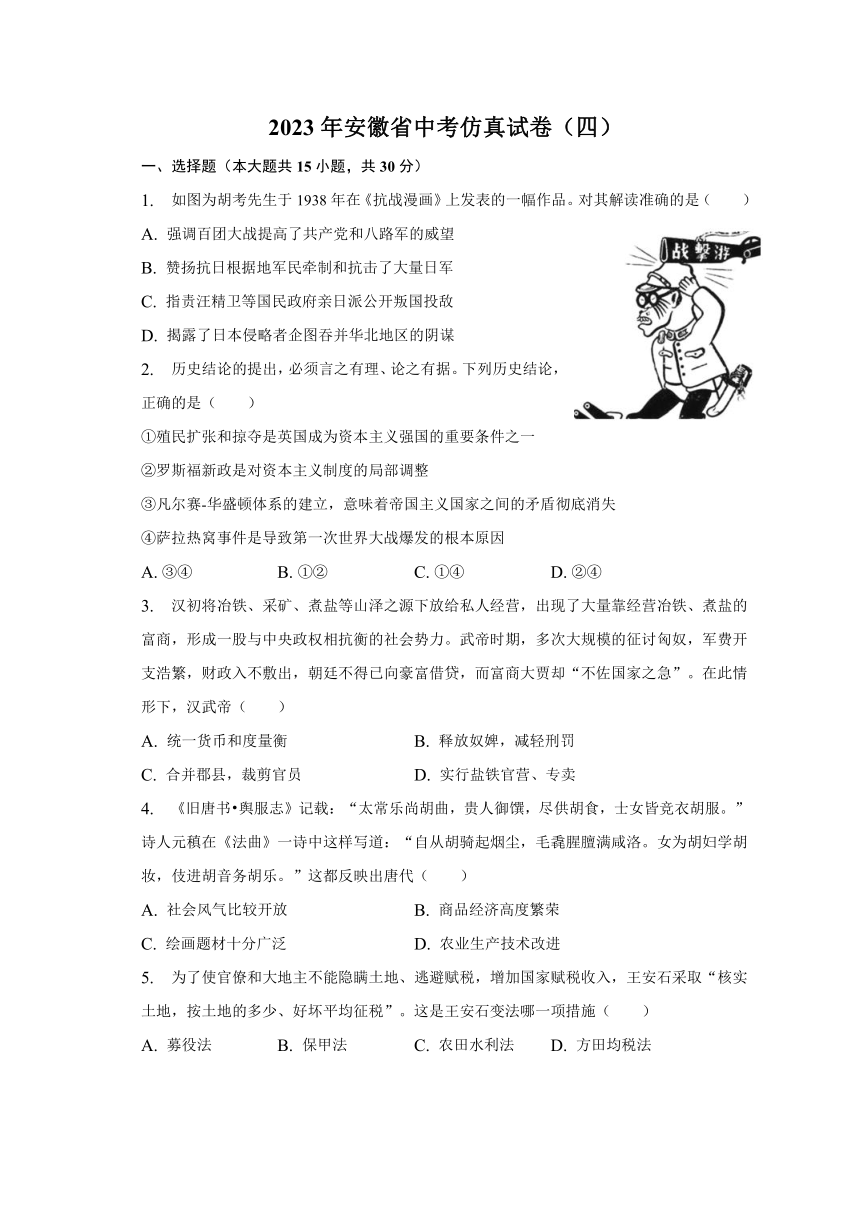 2023年安徽省中考仿真试卷（四）
一、选择题（本大题共15小题，共30分）
1. 如图为胡考先生于1938年在《抗战漫画》上发表的一幅作品。对其解读准确的是（　　）
A. 强调百团大战提高了共产党和八路军的威望
B. 赞扬抗日根据地军民牵制和抗击了大量日军
C. 指责汪精卫等国民政府亲日派公开叛国投敌
D. 揭露了日本侵略者企图吞并华北地区的阴谋
战擊游
2. 历史结论的提出，必须言之有理、论之有据。下列历史结论，
正确的是（　　）
①殖民扩张和掠夺是英国成为资本主义强国的重要条件之一
②罗斯福新政是对资本主义制度的局部调整
③凡尔赛-华盛顿体系的建立，意味着帝国主义国家之间的矛盾彻底消失
④萨拉热窝事件是导致第一次世界大战爆发的根本原因
A. ③④　　B. ①②　　C. ①④　　D. ②④
3. 汉初将冶铁、采矿、煮盐等山泽之源下放给私人经营，出现了大量靠经营冶铁、煮盐的
富商，形成一股与中央政权相抗衡的社会势力。武帝时期，多次大规模的征讨匈奴，军费开
支浩繁，财政入不敷出，朝廷不得已向豪富借贷，而富商大贾却“不佐国家之急”。在此情
形下，汉武帝（　　）
A. 统一货币和度量衡　　B. 释放奴婢，减轻刑罚
C. 合并郡县，裁剪官员　　D. 实行盐铁官营、专卖
4. 《旧唐书•舆服志》记载：“太常乐尚胡曲，贵人御馔，尽供胡食，士女皆竞衣胡服。”
诗人元稹在《法曲》一诗中这样写道：“自从胡骑起烟尘，毛毳腥膻满咸洛。女为胡妇学胡
妆，伎进胡音务胡乐。”这都反映出唐代（　　）
A. 社会风气比较开放　　B. 商品经济高度繁荣
C. 绘画题材十分广泛　　D. 农业生产技术改进
5. 为了使官僚和大地主不能隐瞒土地、逃避赋税，增加国家赋税收入，王安石采取“核实
土地，按土地的多少、好坏平均征税”。这是王安石变法哪一项措施（　　）
A. 募役法　　B. 保甲法　　C. 农田水利法　　D. 方田均税法